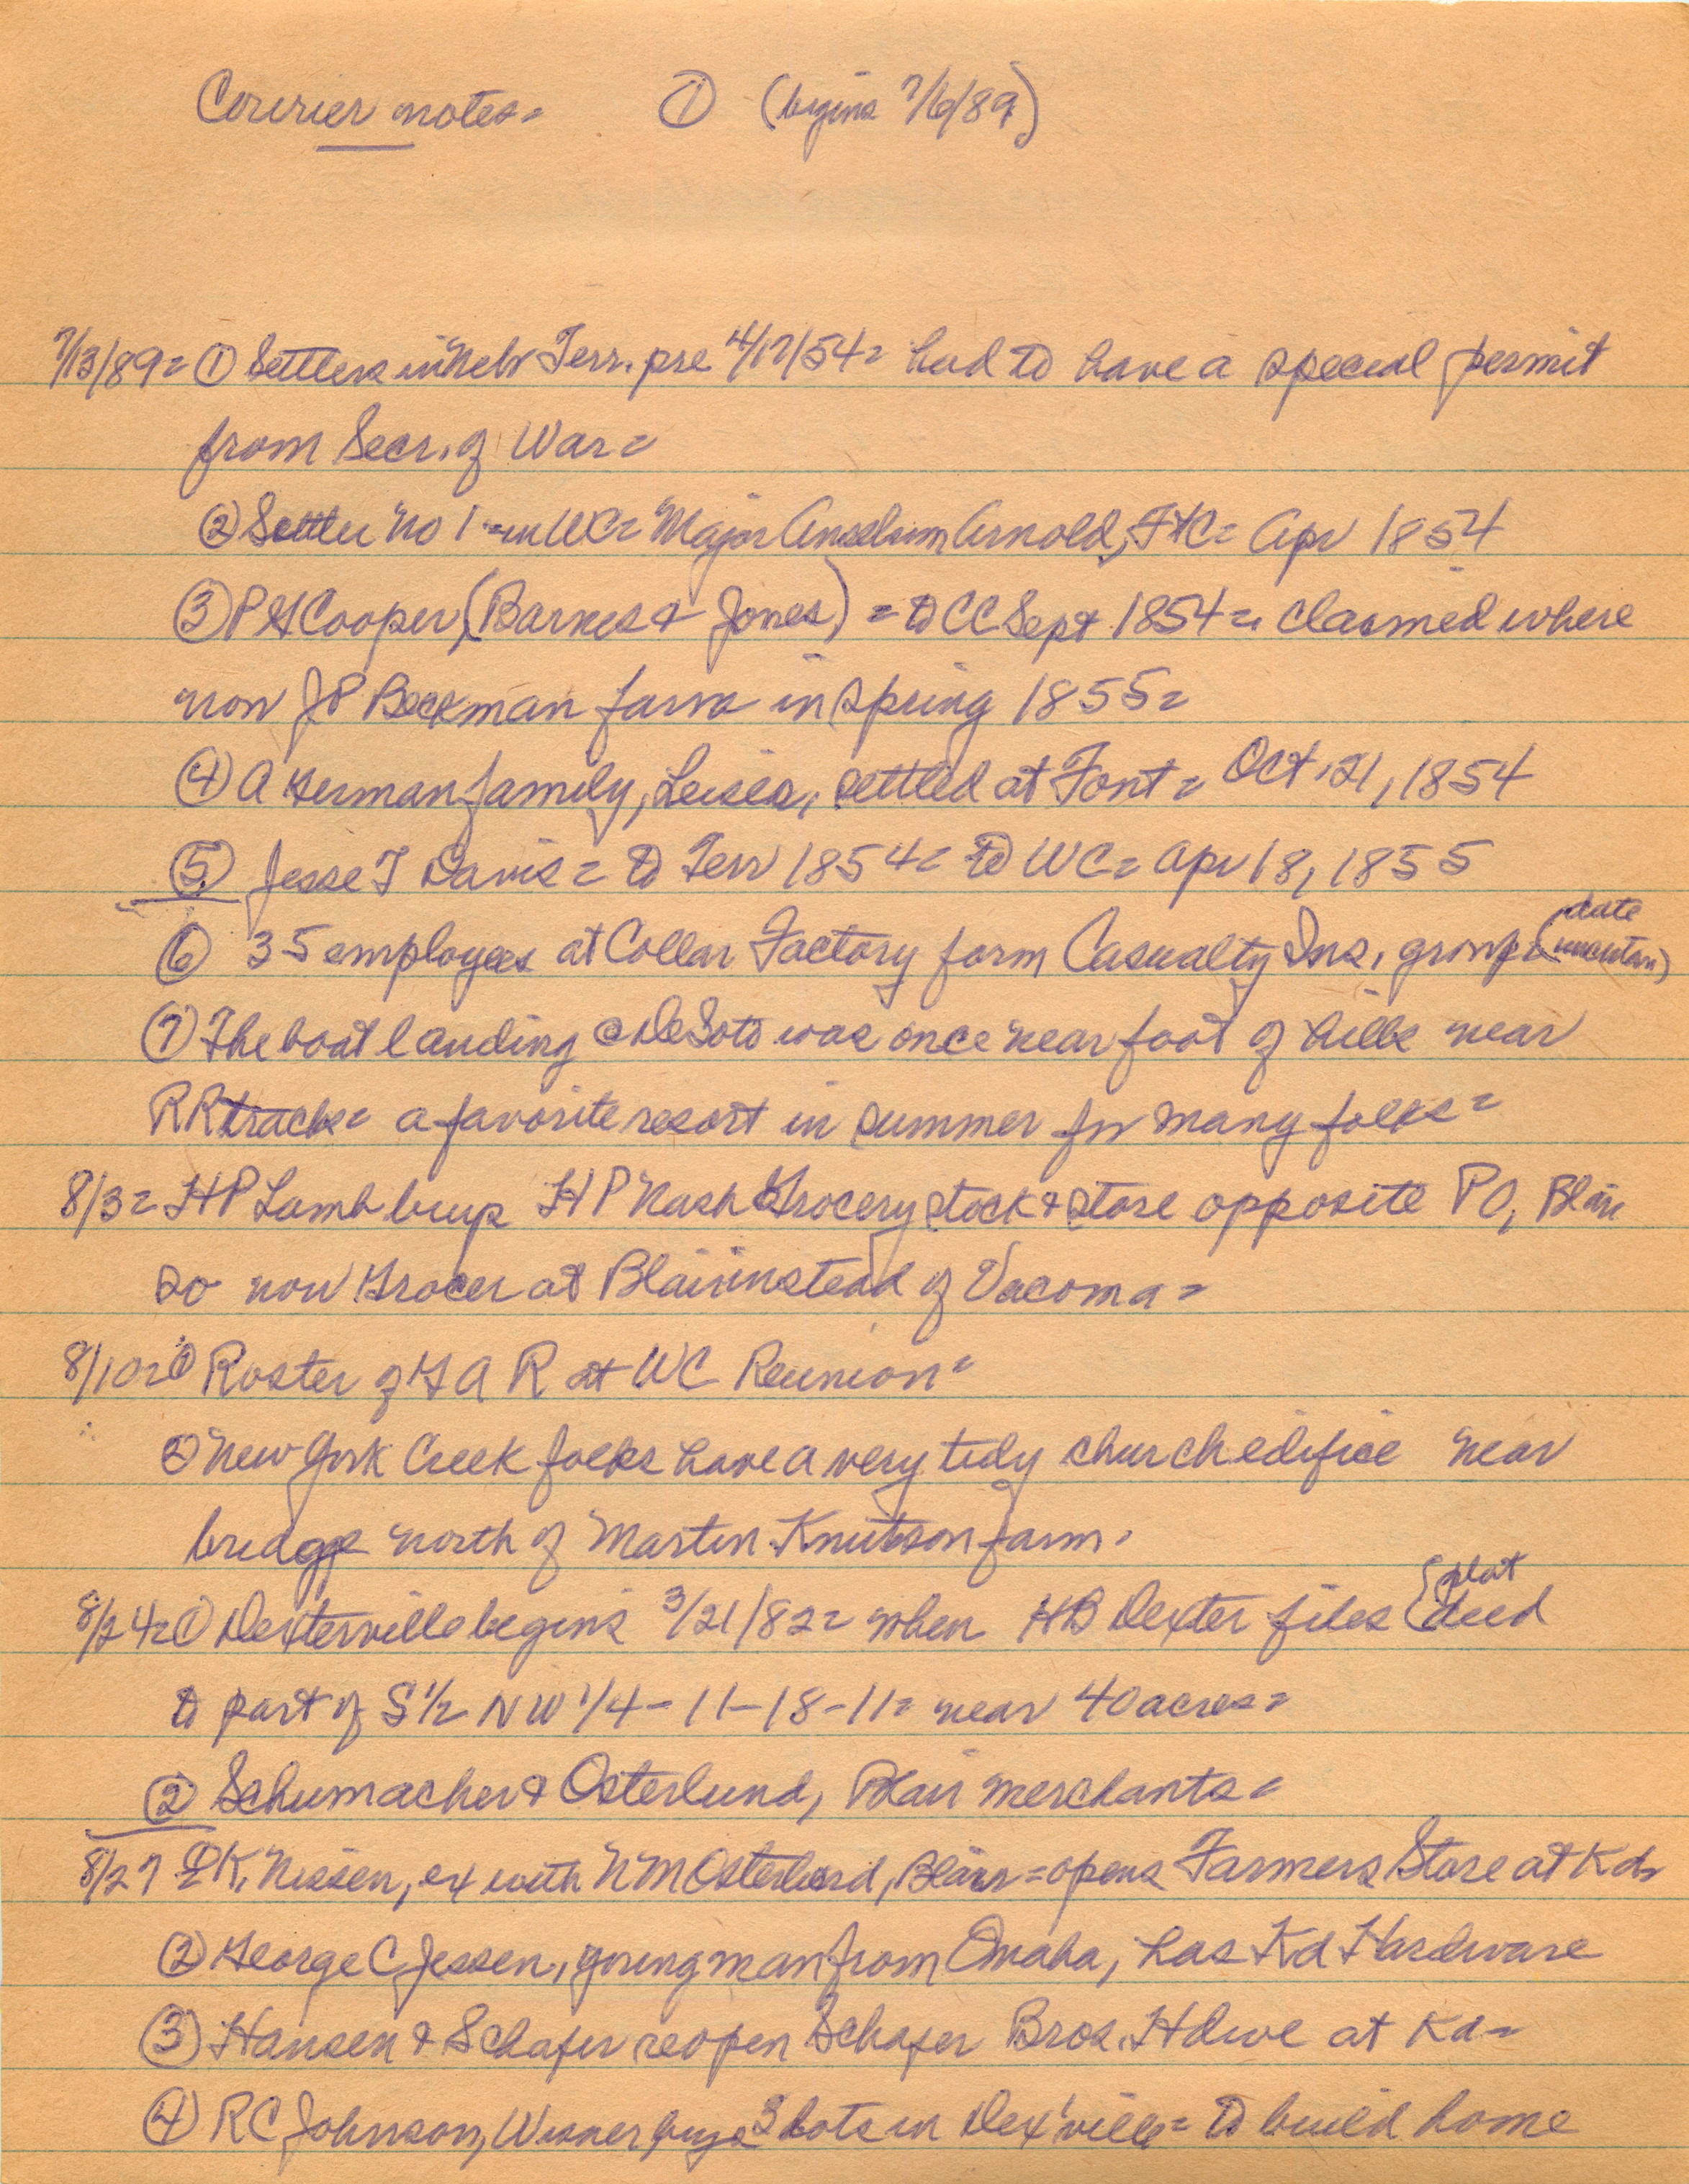 Courier notes= ① (begins 7/6/89)
7/13/89= ① Settlers in Nebr Terr. pre 4/17/54= had to have a special permit
from Secr. of War=
② Settler No 1 = in WC= Major Anselum Arnold, FtC= Apr 1854
③ P G Cooper, (Barnes & Jones) = to CC Sept 1854= claimed where
now JP Beckman farm in spring 1855=
④ A German family, Leisea, settled at Font= Oct. 21, 1854
⑤ Jesse T Davis= to Terr 1854= to WC= Apr 18, 1855
⑥ 35 employees at Collar Factory form Casualty Ins. group (date uncertain)
⑦ The boat landing @ DeSoto was once near foot of hills near
RR track= a favorite resort in summer for many folks=
8/3= HP Lamb buys HP Nash Grocery stock & store opposite PO, Blair
so now Grocer at Blair instead of Vacoma=
8/10= ① Roster of G A R at WC Reunion=
② New York Creek folks have a very tidy church edifice near
bridge north of Martin Knutson farm.
8/24= ① Dexterville begins 3/21/82= when HB Dexter files {plat deed
to part of S 1/2 NW 1/4-11-18-11= near 40 acres=
② Schumacher & Osterlund, Blair merchants=
8/27 ① K. Nissen, ex with NM Osterlund, Blair= opens Farmers Store at Kd=
② George C Jessen, young man from Omaha, has Kd Hardware
③ Hansen & Schafer reopen Schafer Bros. Hdwe at Kd=
④ RC Johnson, buys 3 lots in Dex'ville= to build home